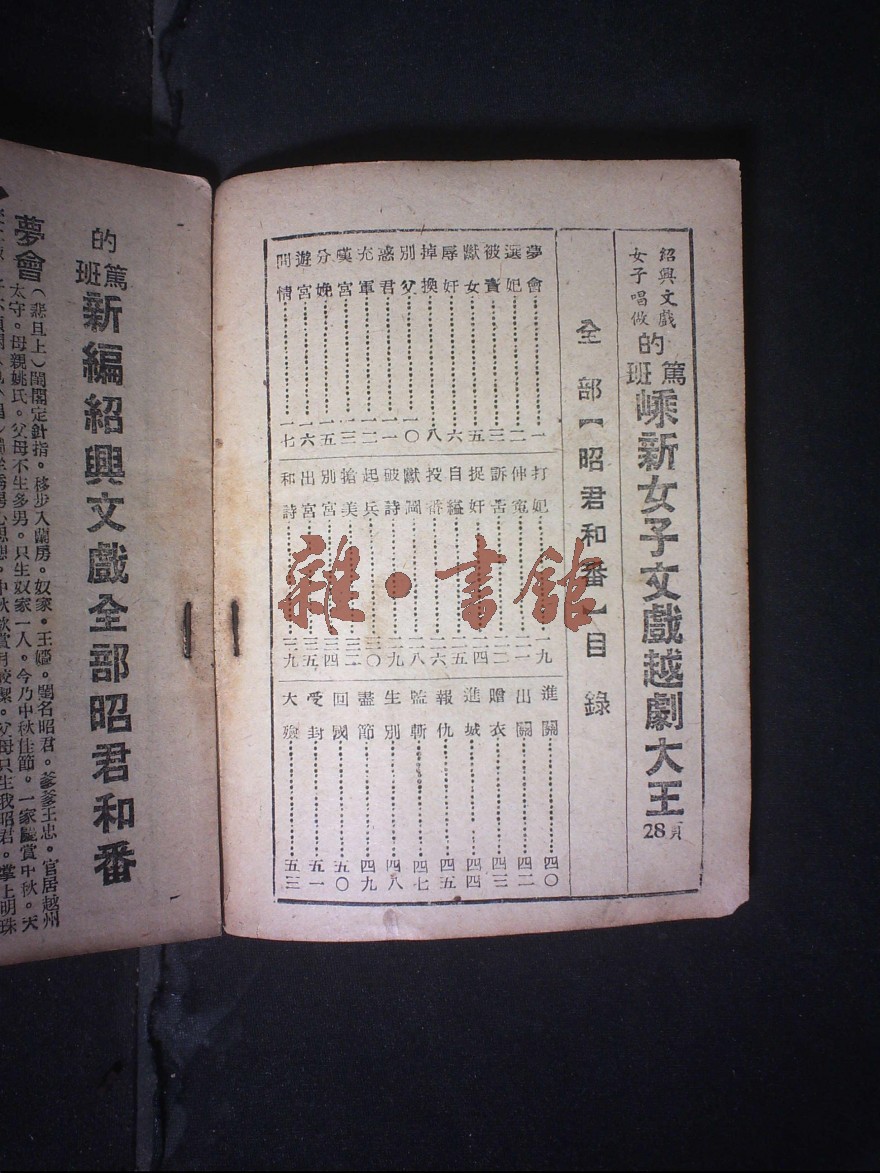 紹興文戲
女子唱做
的篤班
嵊新女子文戲越劇大王
28頁
全部【昭君和番】目錄
夢會……一
選妃……二
被責……三
獻女……五
辱奸……六
掉換……八
別父……一〇
惑君……一一
充軍……一二
嘆宮……一三
分娩……一五
遊宮……一六
問情……一七
打妃……一九
伸冤……二一
訴苦……二二
捉奸……二四
自縊……二五
投番……二六
獻圖……二八
破詩……二九
起兵……三〇
搶美……三二
別宮……三四
出宮……三五
和詩……三九
進關……四〇
出關……四二
贈衣……四三
進城……四四
報仇……四五
監斬……四七
生別……四八
盡節……四九
回國……五〇
受封……五一
大殮……五三
雜·書館
的篤班
新編紹興文戲全部昭君和番
夢會（悲旦上）閨閣定針指。移步入蘭房。奴家。王嬙。閨名昭君。爹爹王忠。官居越州
太守。母親姚氏。父母不生多男。只生奴家一人。今乃中秋佳節。一家慶賞中秋。天
中秋飲賞月皎潔。父母只生我昭君。掌上明珠